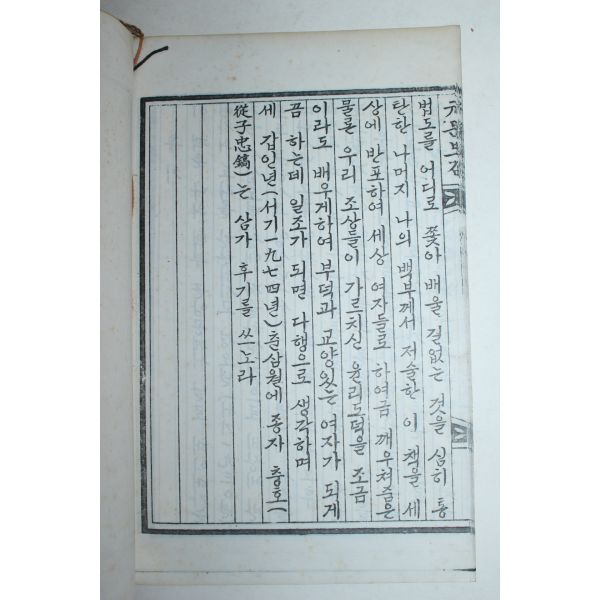 규문보감
법도를 어디로 쫓아 배울 길없는 것을 심히 통
탄한 나머지 나의 백부께서 저술한 이 책을 세
상에 반포하여 세상 여자들로 하여금 깨우쳐줌은
물론 우리 조상들이 가르치신 윤리도덕을 조금
이라도 배우게하여 부덕과 교양있는 여자가 되게
끔 하는데 일조가 되면 다행으로 생각하며
세 갑인년(서기一九七四년)춘삼월에 종자 충호(
從子忠鎬)는 삼가 후기를 쓰노라